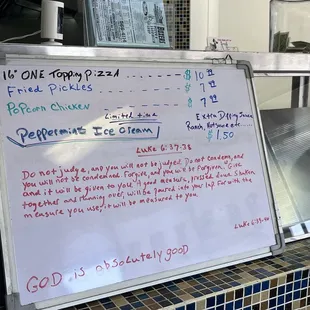 16" ONE Topping Pizza ------- $ 10 99
Fried Pickles ---------- $ 7 99
PoPcorn Chicken ---------- $ 7 99
Limited time
Extra Dipping Sauce
Ranch,
$1.50
Peppermint Ice Cream
Luke 6:37-38
Do not judge, and you will not be judged. Do not condemn, and
you will not be condemned. Forgive, and you will be forgiven. Give
and it will be given to you. A good measure, pressed down, shaken
together and running over, will be poured into your lap. For with the
measure you use, it will be measured to you.
Luke 6:
GOD is absolutely good